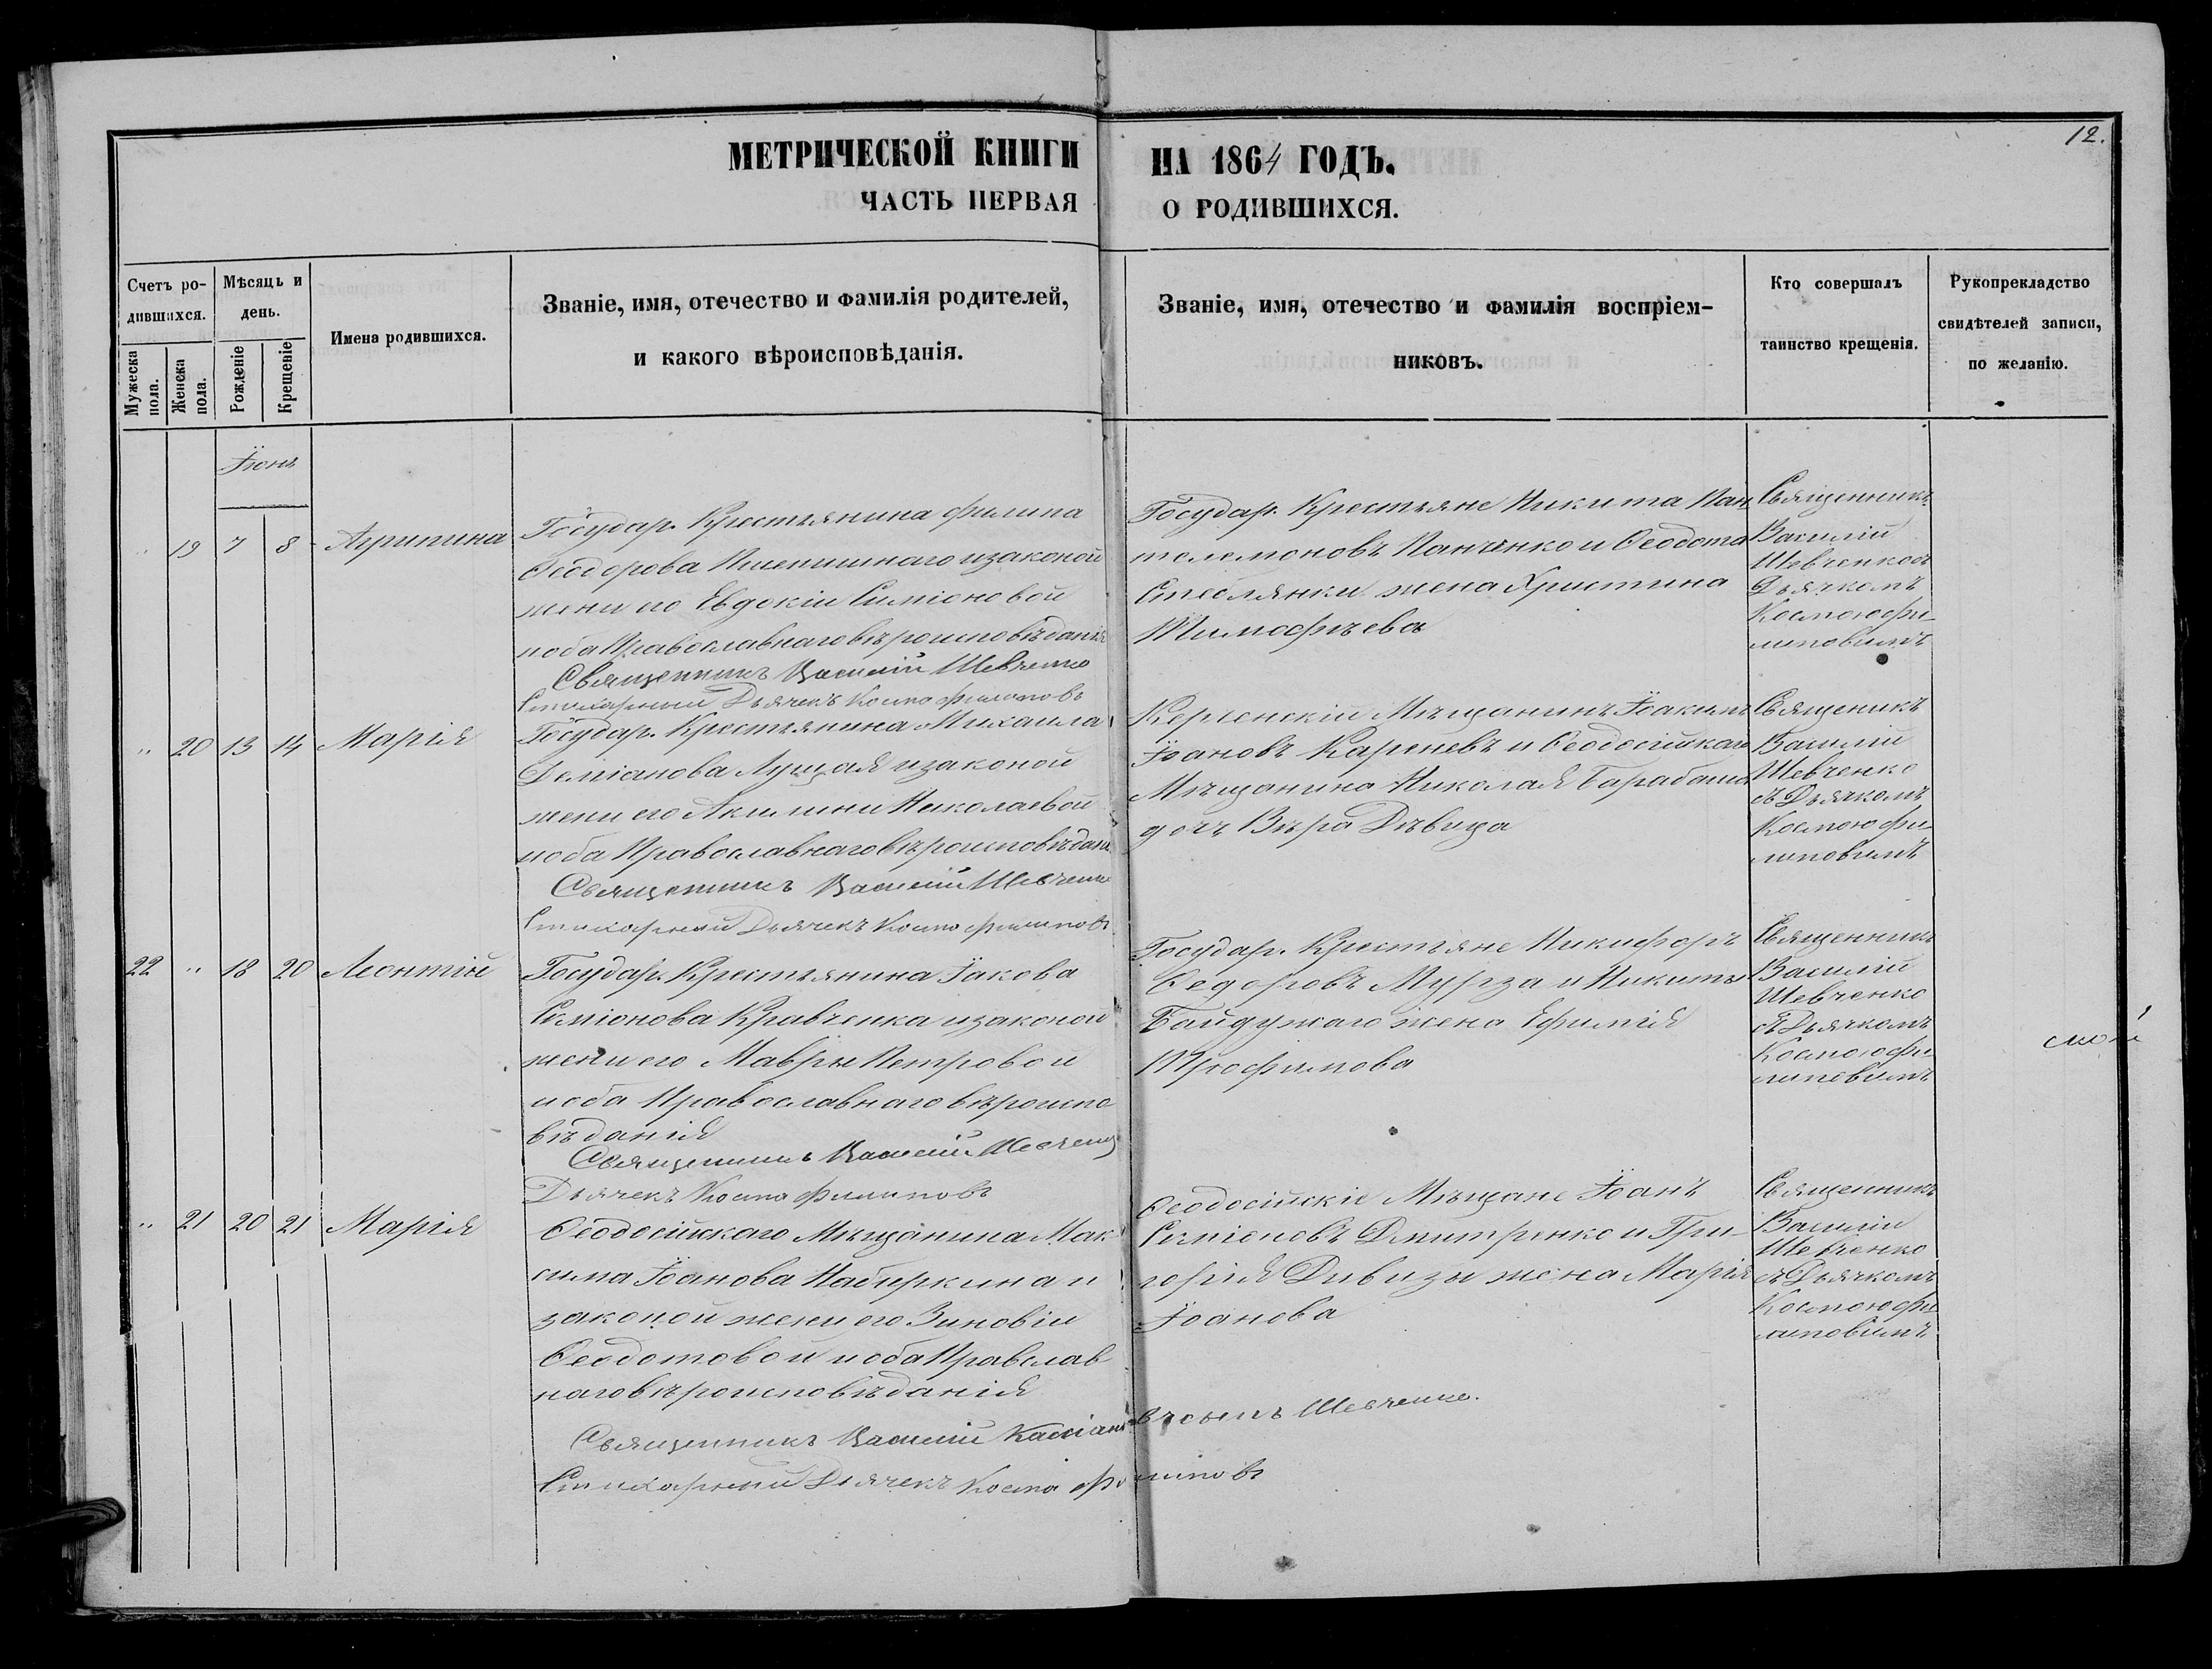 12.
МЕТРИЧЕСКОЙ КНИГИ НА 1864 ГОДЪ.
ЧАСТЬ ПЕРВАЯ О РОДИВШИХСЯ.
Счетъ ро-
дившихся.
Мужеска пола.
Женска пола.
Мѣсяцъ и
день.
Рожденіе
Крещеніе
Имена родившихся.
Званіе, имя, отечество и фамилія родителей,
и какого вѣроисповѣданія.
Званіе, имя, отечество и фамилія воспріем-
никовъ.
Кто совершалъ
таинство крещенія.
Рукоприкладство
свидѣтелей записи,
по желанію.
Іюнь
" 19 7 8 Агрипина
Государ. Крестьянина Филипа
Ѳеодорова Пшеничнаго изаконой
жени его Евдокіи Симіоновой
иоба Православнаго вѣроисповѣданія
Священникъ Василій Шевченко
Стихарный Дьячекъ Косма Филиповъ
Государ. Крестьяне Никита Пан
телемоновъ Панченко и Ѳеодота
жена Христина
Тимофѣева
Священникъ
Василій
Шевченко съ
Дьячкомъ
Космою Фи
липовимъ
" 20 13 14 Марія
Государ. Крестьянина Михаила
Деміанова Луцая изаконой
жени его Акилини Николаевой
иоба Православнаго вѣроисповѣдані
Священникъ Василій Шевченко
Стихарный Дьячекъ Косма Филиповъ
Керченскій Мѣщанинъ Іоакимъ
Іоановъ Карѣневъ и Ѳеодосійскаго
Мѣщанина Николая Барабаша
дочь Вѣра Дѣвица
Священикъ
Василій
Шевченко
съ Дьячкомъ
Космою Фи
липовимъ
22 " 18 20 Леонтій
Государ. Крестьянина Іакова
Симіонова Кравченка изаконой
жени его Мавры Петровой
иоба Православнаго вѣроиспо
вѣданія
Священникъ Василій Шевченко
Дьячекъ Косма Филиповъ
Государ. Крестьяне Никифоръ
Ѳедоровъ Мурза и Никиты
Байдужаго жена Ефимія
Трофимова
Священникъ
Василій
Шевченко
съ Дьячкомъ
Космою Фи
липовимъ
" 21 20 21 Марія
Ѳеодосійскаго Мѣщанина Мак
сима Іоанова Набиркина и
законой жени его Зиновіи
Ѳеодотовой иобаПравслав
наго вѣроисповѣданія
Священникъ Василій Касіановъ сынъ Шевченко.
Стихарный Дьячекъ Косма Филиповъ
Ѳеодосійскіе Мѣщане Іоанъ
Симіоновъ Дмитренко и Гри-
горія Дивизы жена Марія
Іоанова
Священникъ
Василій
Шевченко
съ Дьячкомъ
Космою Фи
липовимъ